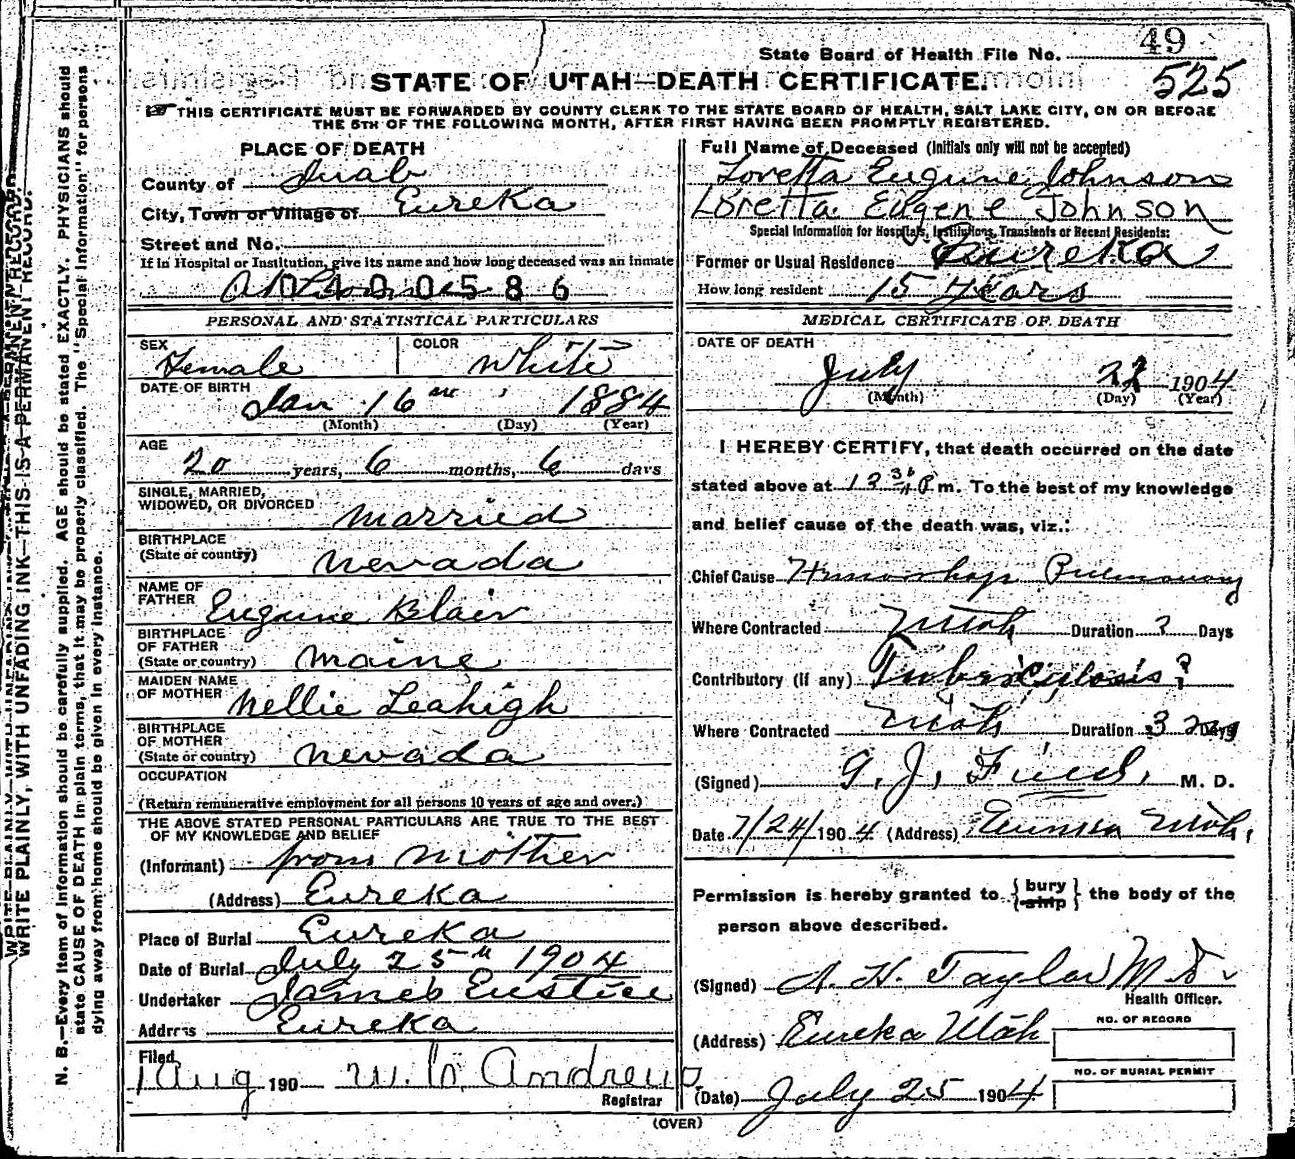 49
State Board of Health File No.
525
STATE OF UTAH—DEATH CERTIFICATE.
☞ THIS CERTIFICATE MUST BE FORWARDED BY COUNTY CLERK TO THE STATE BOARD OF HEALTH, SALT LAKE CITY, ON OR BEFORE
THE 5TH OF THE FOLLOWING MONTH, AFTER FIRST HAVING BEEN PROMPTLY REGISTERED.
WRITE PLAINLY, WITH UNFADING INK—THIS IS A PERMANENT RECORD.
N. B.—Every item of Information should be carefully supplied. AGE should be stated EXACTLY. PHYSICIANS should
state CAUSE OF DEATH in plain terms, that it may be properly classified. The "Special Information" for persons
dying away from home should be given in every instance.
PLACE OF DEATH
County of Juab
City, Town or Village of Eureka
Street and No.
If in Hospital or Institution, give its name and how long deceased was an inmate
At Home
0400586
PERSONAL AND STATISTICAL PARTICULARS
SEX Female COLOR White
DATE OF BIRTH Jan 16 1884
(Month) (Day) (Year)
AGE
20 years, 6 months, 6 days
SINGLE, MARRIED,
WIDOWED, OR DIVORCED married
BIRTHPLACE
(State or country) nevada
NAME OF
FATHER Eugune Blair
BIRTHPLACE
OF FATHER
(State or country) maine
MAIDEN NAME
OF MOTHER nellie Leahigh
BIRTHPLACE
OF MOTHER
(State or country) nevada
OCCUPATION
(Return remunerative employment for all persons 10 years of age and over.)
THE ABOVE STATED PERSONAL PARTICULARS ARE TRUE TO THE BEST
OF MY KNOWLEDGE AND BELIEF
(Informant) from mother
(Address) Eureka
Place of Burial Eureka
Date of Burial July 25th 1904
Undertaker James Eustice
Address Eureka
Filed
1 Aug 190 W. N. Andrews
Registrar
Full Name of Deceased (Initials only will not be accepted)
Loretta Eugune Johnson
Loretta Eugene Johnson
Special Information for Hospitals, Institutions, Transients or Recent Residents:
Former or Usual Residence Eureka
How long resident 15 Years
MEDICAL CERTIFICATE OF DEATH
DATE OF DEATH
July 22 1904
(Month) (Day) (Year)
I HEREBY CERTIFY, that death occurred on the date
stated above at 12 30 P m. To the best of my knowledge
and belief cause of the death was, viz.:
Chief Cause Hemorrhage Pulmonary
Where Contracted Utah Duration ? Days
Contributory (if any) Tuberculosis?
Where Contracted Utah Duration 3 Days
(Signed) G. J. M. D.
Date 7/24/1904 (Address) Eureka Utah,
Permission is hereby granted to {bury ship} the body of the
person above described.
(Signed) A. H. Taylor M D.
Health Officer.
(Address) Eureka Utah
NO. OF RECORD
NO. OF BURIAL PERMIT
(Date) July 25 1904
(OVER)